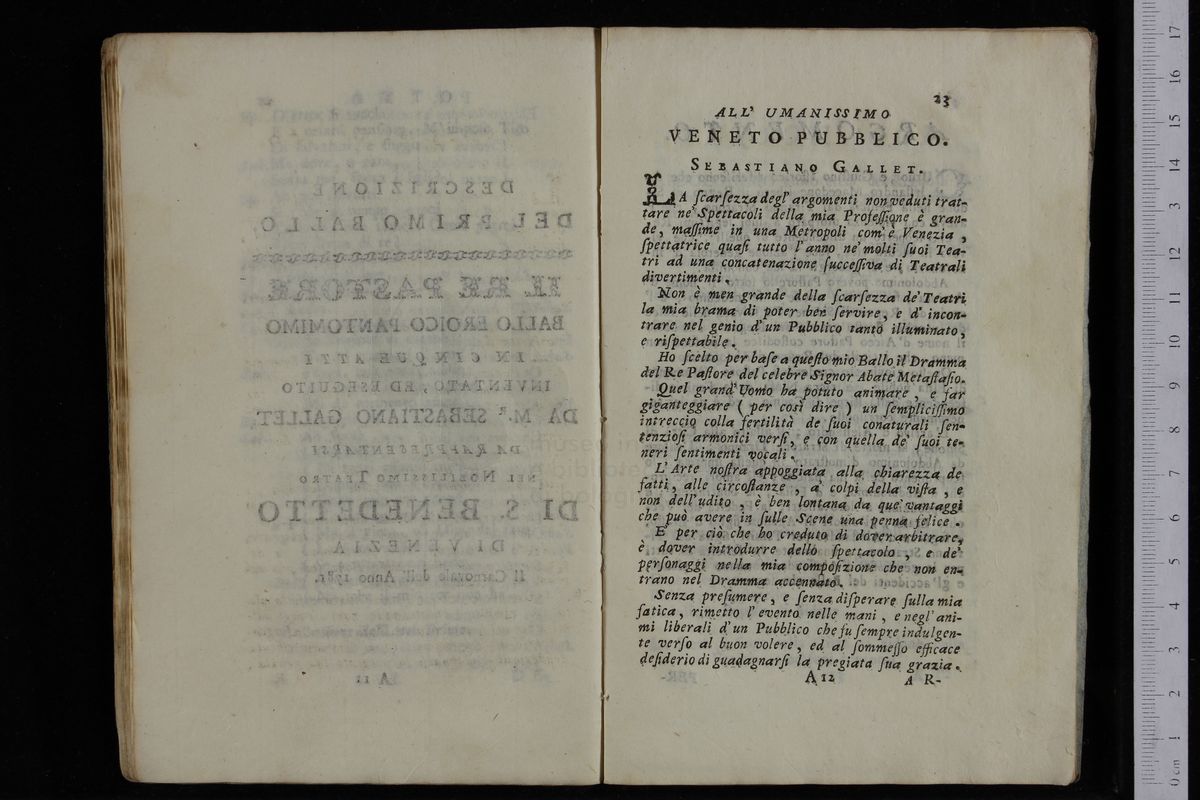 23
ALL' UMANISSIMO
VENETO PUBBLICO.
SEBASTIANO GALLET.
LA ſcarſezza degl' argomenti non veduti trat-
tare ne' Spettacoli della mia Profeſſione è gran-
de, maſſime in una Metropoli com' è Venezia,
ſpettatrice quaſi tutto l'anno ne' molti ſuoi Tea-
tri ad una concatenazione ſucceſſiva di Teatrali
divertimenti.
Non è men grande della ſcarſezza de' Teatri
la mia brama di poter ben ſervire, e d' incon-
trare nel genio d'un Pubblico tanto illuminato,
e riſpettabile.
Ho ſcelto per baſe a queſto mio Ballo il Dramma
del Re Paſtore del celebre Signor Abate Metaſtaſio.
Quel grand' Uomo ha potuto animare, e far
giganteggiare ( per così dire ) un ſempliciſſimo
intreccio colla fertilità de ſuoi conaturali ſen-
tenzioſi armonici verſi, e con quella de' ſuoi te-
neri ſentimenti vocali.
L' Arte noſtra appoggiata alla chiarezza de
fatti, alle circoſtanze, a' colpi della viſta, e
non dell' udito, è ben lontana da que' vantaggi
che può avere in ſulle Scene una penna felice.
E' per ciò che ho creduto di dover arbitrare,
è dover introdurre dello ſpettacolo, e de'
perſonaggi nella mia compoſizione che non en-
trano nel Dramma accennato.
Senza preſumere, e ſenza diſperare ſulla mia
fatica, rimetto l' evento nelle mani, e negl' ani-
mi liberali d' un Pubblico che fu ſempre indulgen-
te verſo al buon volere, ed al ſommeſſo efficace
deſiderio di guadagnarſi la pregiata ſua grazia.
A 12 A R-